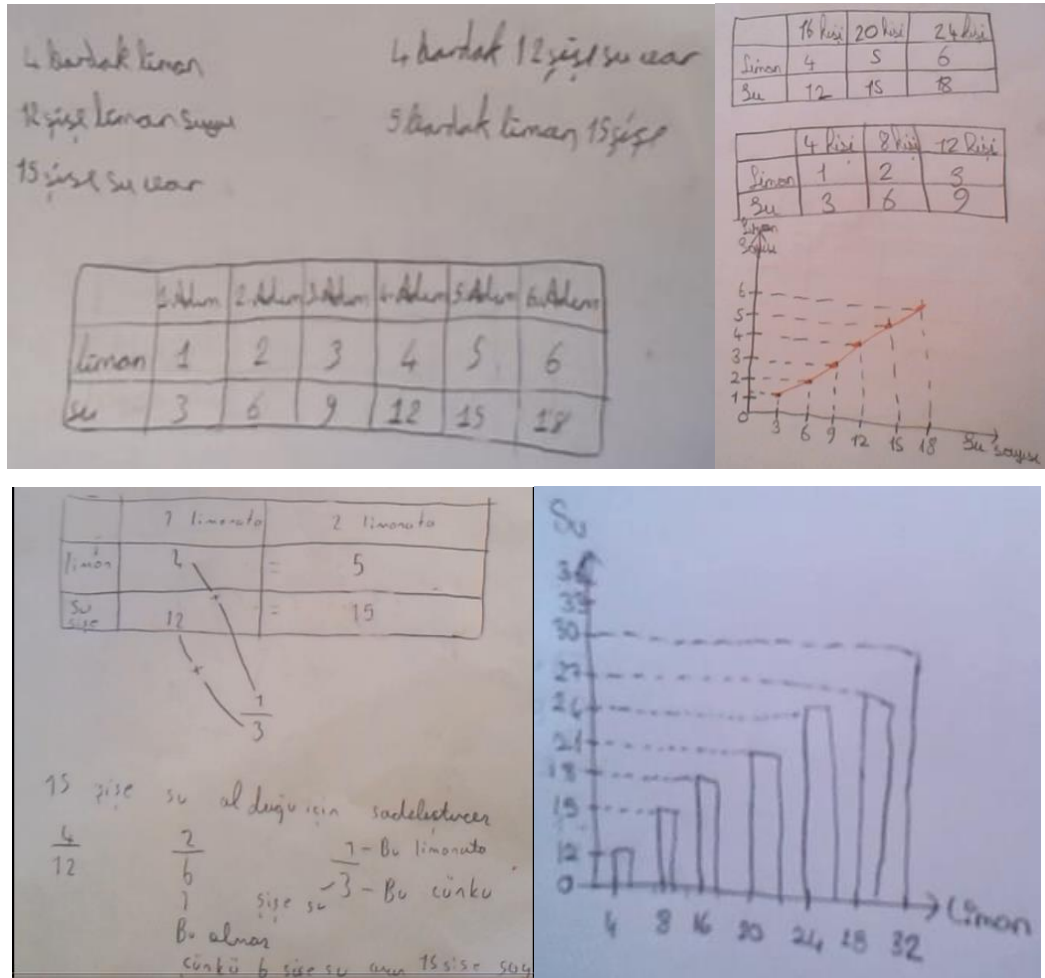 4 bardak limon
12 şişe limon suyu
15 şişe su var
4 bardak 12 şişe su var
5 bardak limon 15 şişe
1.Adım 2.Adım 3.Adım 4.Adım 5.Adım 6.Adım
limon 1 2 3 4 5 6
su 3 6 9 12 15 18
16 kişi 20 kişi 24 kişi
Limon 4 5 6
Su 12 15 18
4 kişi 8 kişi 12 kişi
Limon 1 2 3
Su 3 6 9
Limon
Sayısı
6
5
4
3
2
1
0
3 6 9 12 15 18 Su sayısı
1 limonata 2 limonata
limon 4 = 5
su
şişe 12 = 15
1
3
15 şişe su alduğu için
4
12
2
6
1 - Bu limonata
3 - Bu çünkü
1 şişe su
Bu almas
çünkü 6 şişe su 15 şişe
Su
33
30
27
24
21
18
15
12
0
4 8 16 20 24 28 32 Limon